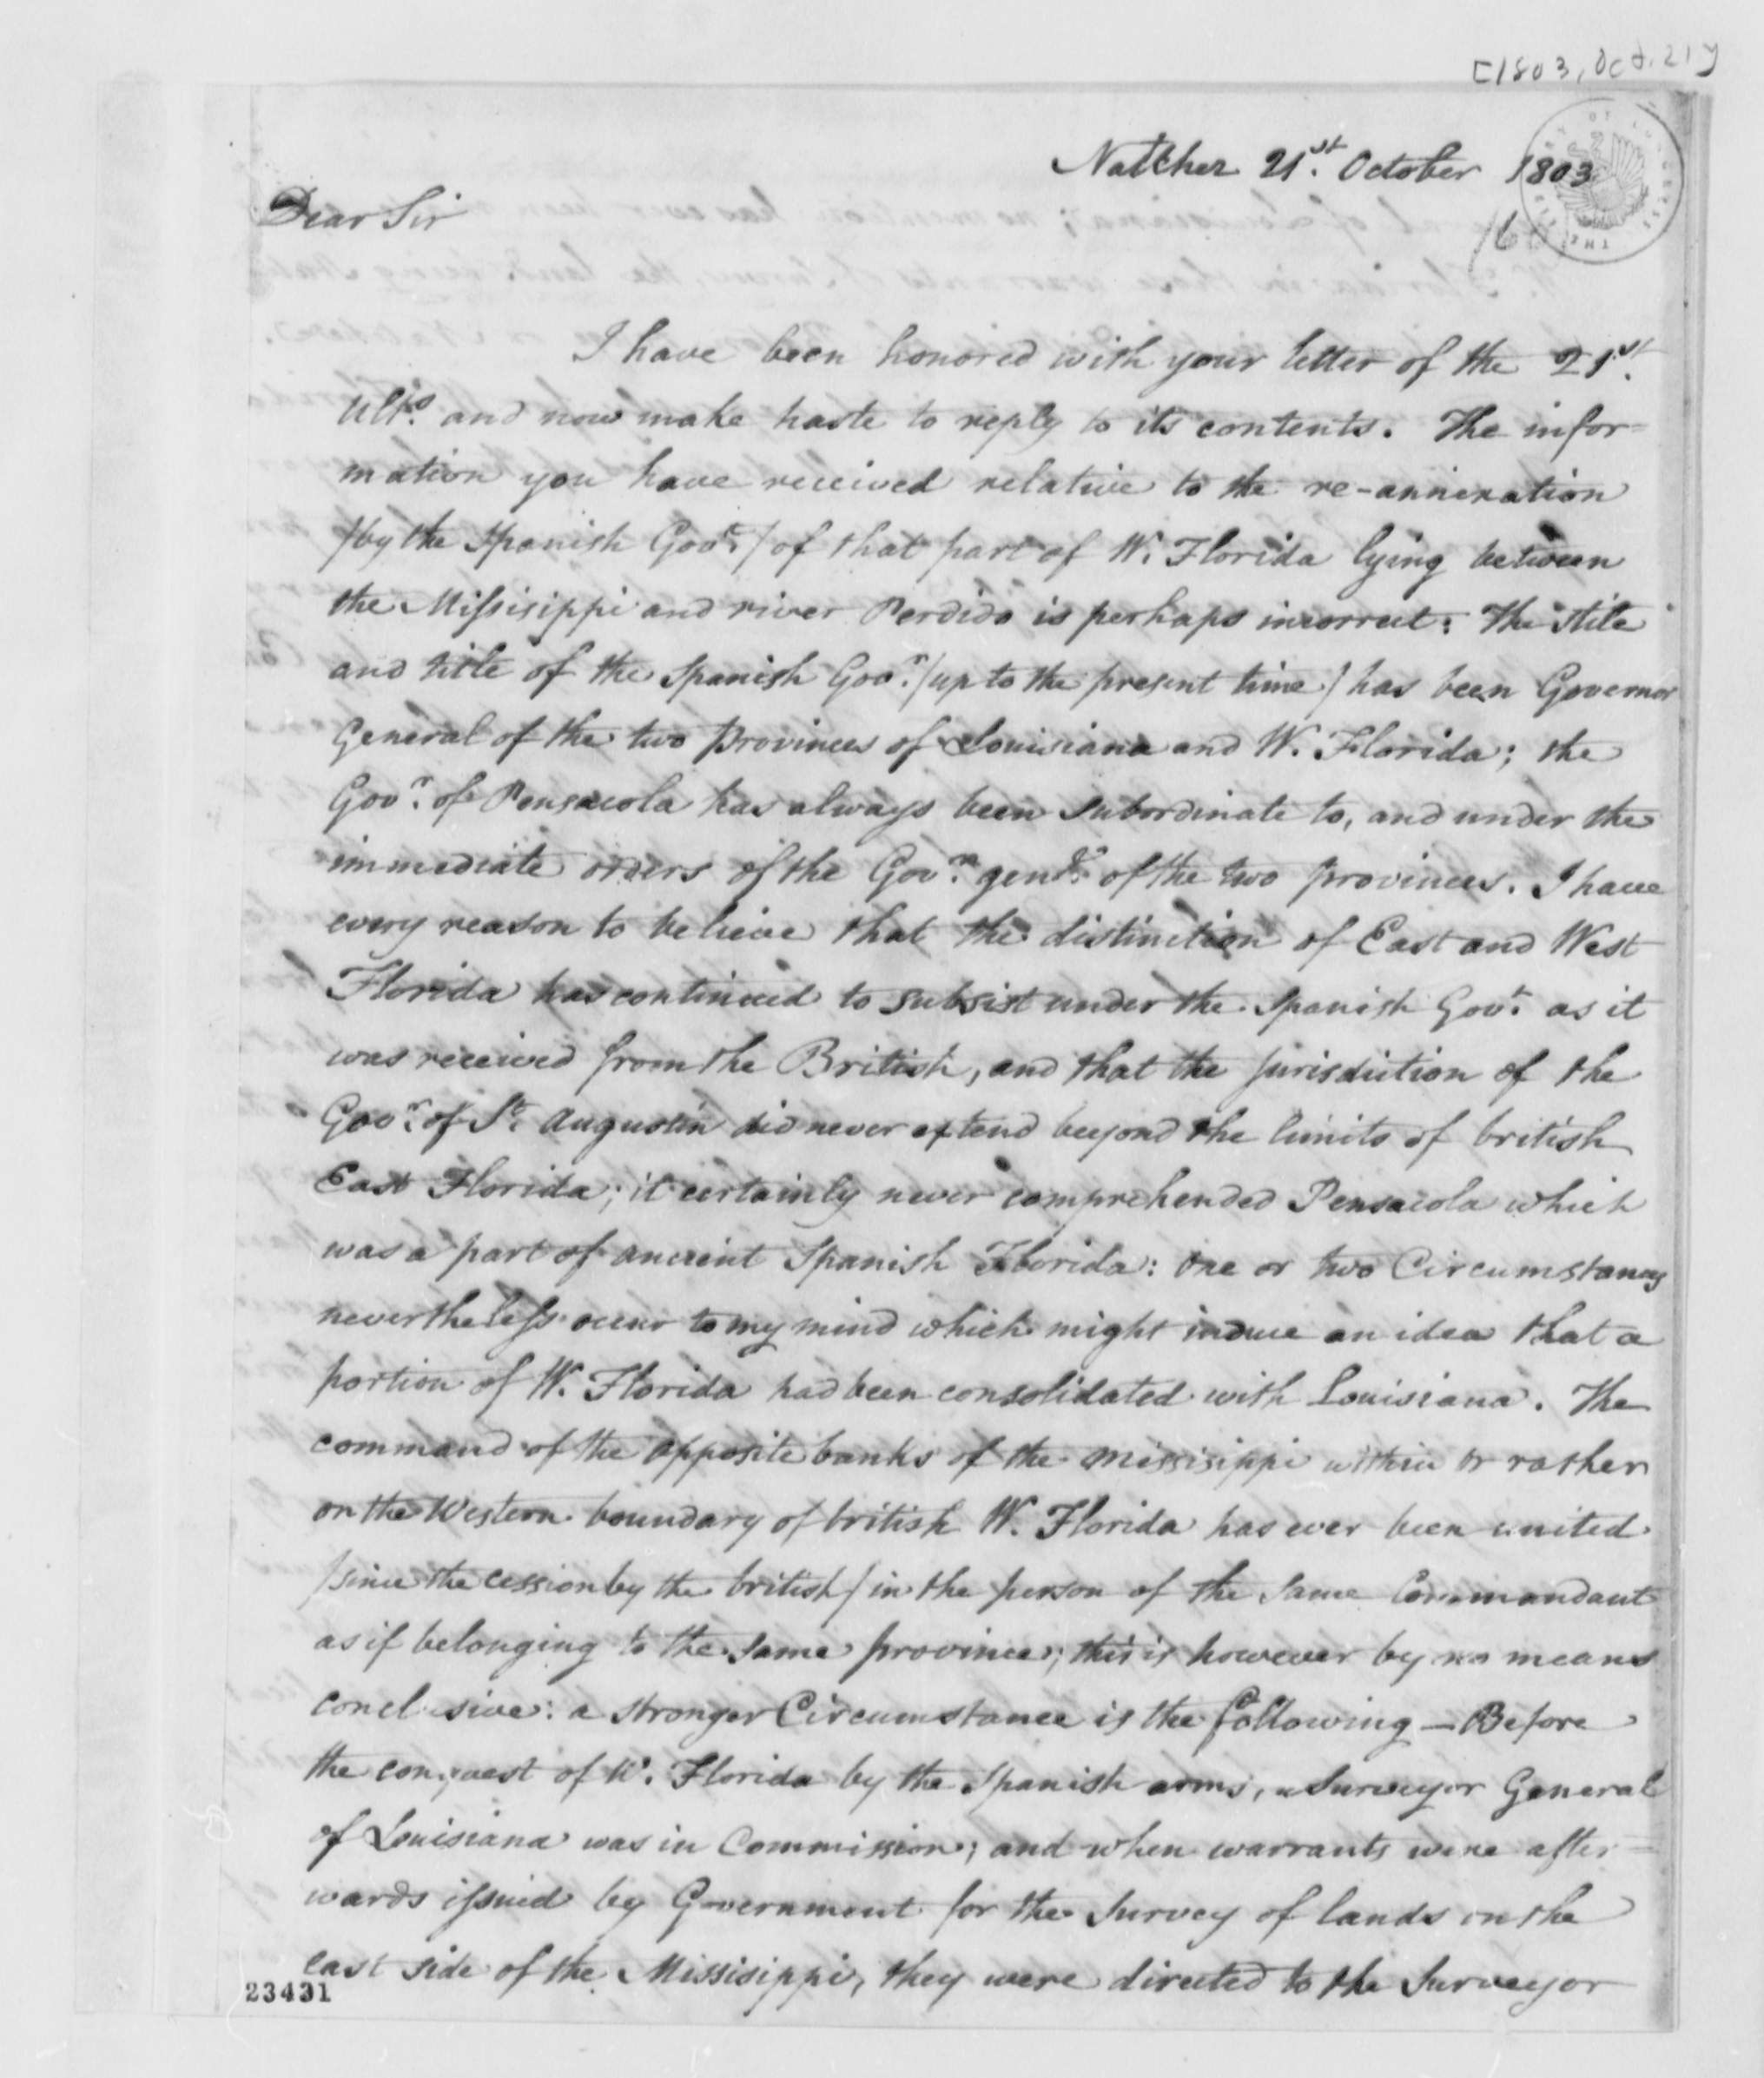 [1803, Oct. 21]
Natchez 21st. October 1803
Dear Sir
I have been honored with your letter of the 21st.
Ulto. and now make haste to reply to its contents. The infor=
mation you have received relative to the re-annexation
/by the Spanish Govt./ of that part of W. Florida lying between
the Missisippi and river Perdido is perhaps incorrect: The stile
and title of the Spanish Govr. /up to the present time/ has been Governor
General of the two provinces of Louisiana and W. Florida; the
Govr. of Pensacola has always been subordinate to, and under the
immediate orders of the Govr. genl. of the two provinces. I have
every reason to believe that the distinction of East and West
Florida has continued to subsist under the Spanish Govt. as it
was received from the British, and that the jurisdiction of the
Govr. of St. Augustin did never extend beyond the limits of british
East Florida; it certainly never comprehended Pensacola which
was a part of ancient Spanish Florida: one or two Circumstances
nevertheless occur to my mind which might induce an idea that a
portion of W. Florida had been consolidated with Louisiana. The
command of the opposite banks of the Missisippi within or rather
on the Western boundary of british W. Florida has ever been united
/since the cession by the british/ in the person of the same Commandant
as if belonging to the same province; this is however by no means
conclusive: a stronger Circumstance is the following — Before
the conquest of W. Florida by the Spanish arms, a Surveyor General
of Louisiana was in Commission; and when warrants were after=
wards issued by Government for the Survey of lands on the
east side of the Missisippi, they were directed to the Surveyor
23431